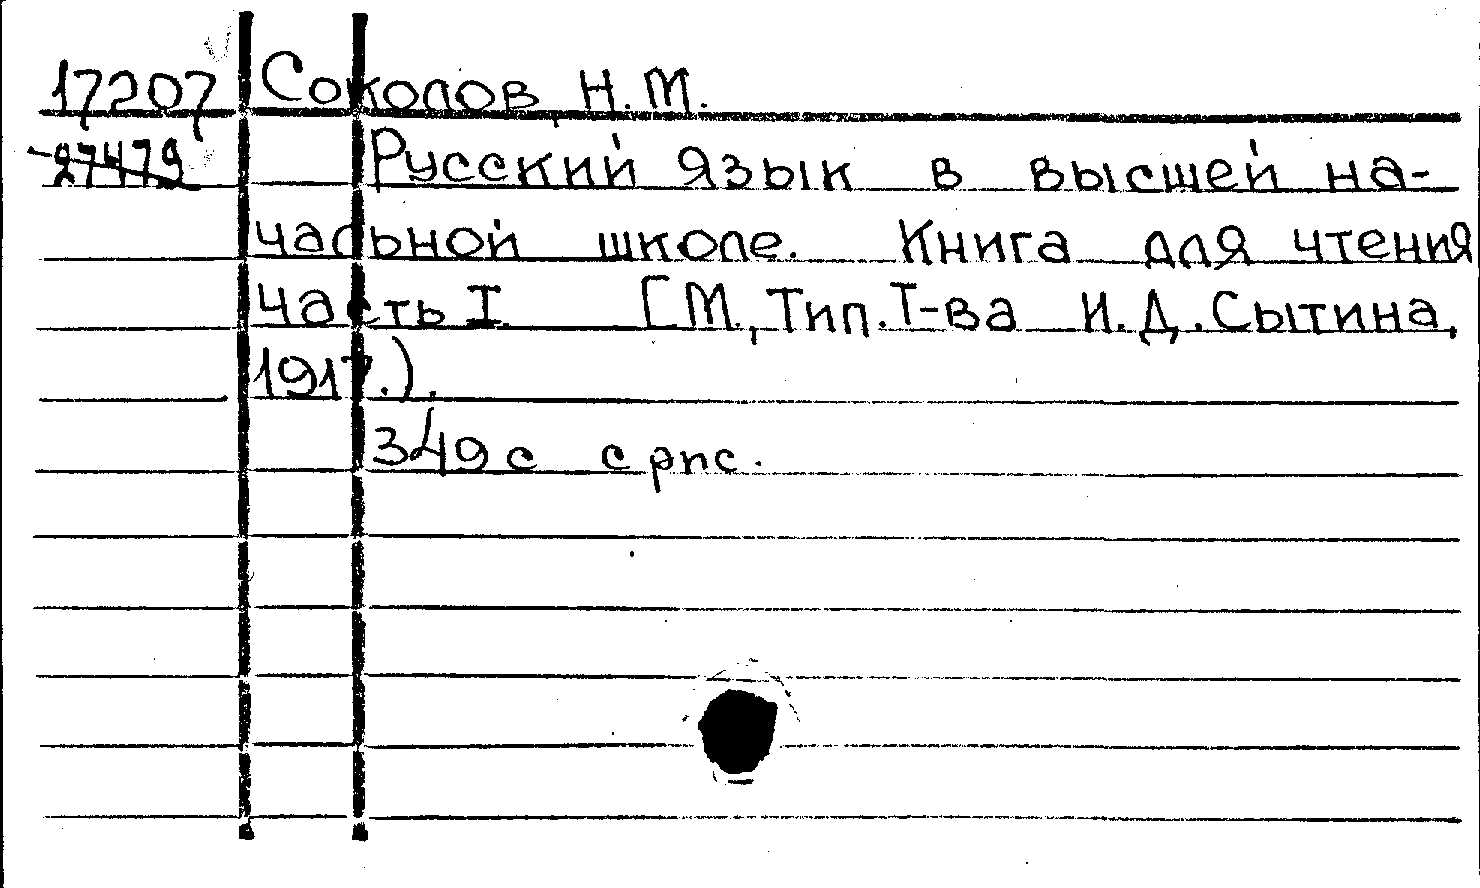 17207 Соколов Н.М.
27479 Русский язык в высшей на-
чальной школе. Книга для чтения
часть I [М., Тип. Т-ва И.Д. Сытина,
1917.).
349 с с рис.